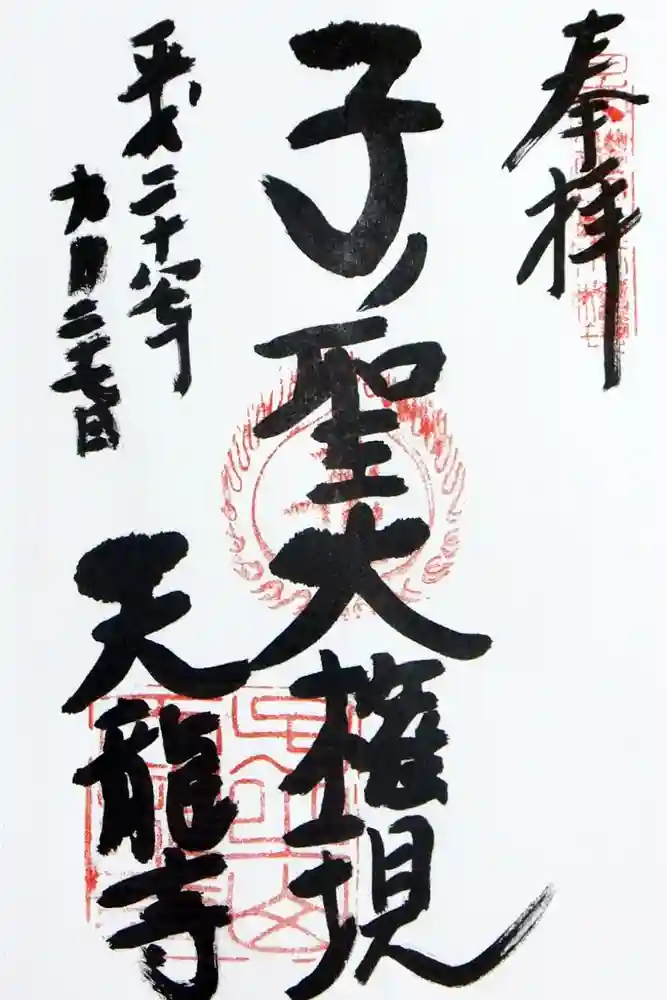 奉拝
子ノ聖大権現
平成二十八年
九月二十七日
天龍寺